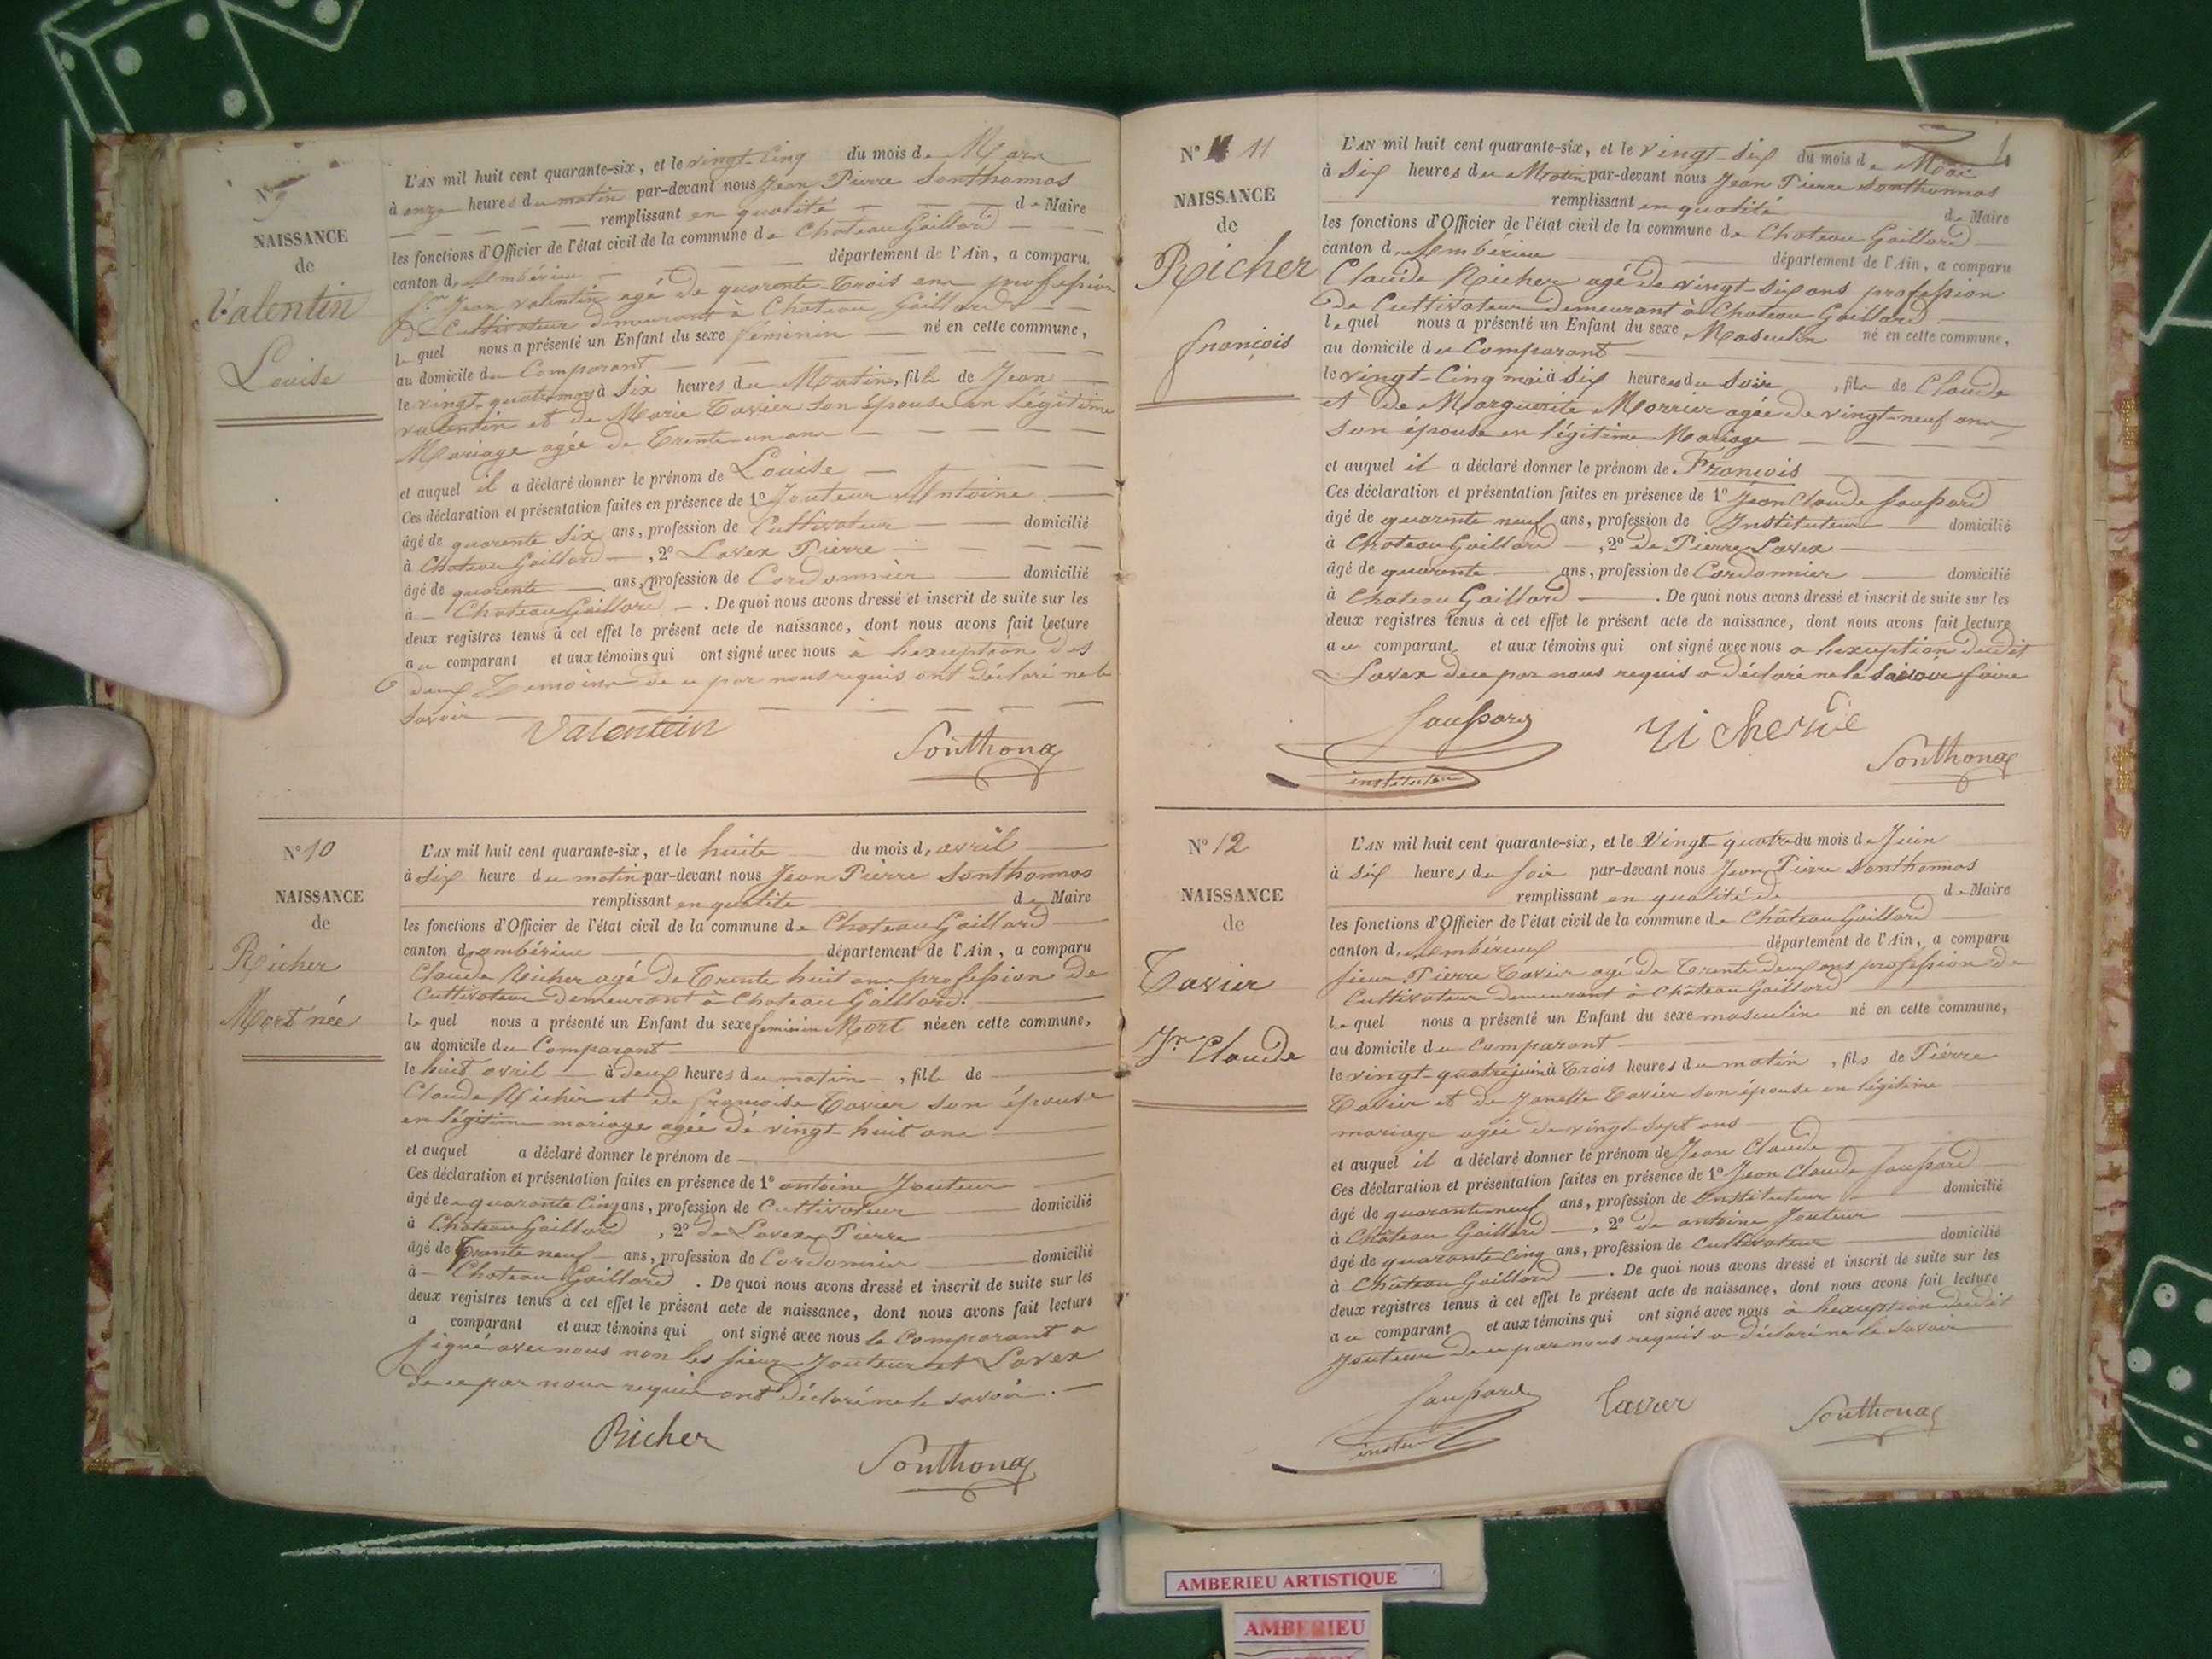 N° 9
NAISSANCE
de
Valentin
Louise
L'AN mil huit cent quarante-six, et le vingt-cinq du mois de Mars
à onze heures du matin par-devant nous Jean Pierre Sonthonnas
remplissant en qualité de Maire
les fonctions d'Officier de l'état civil de la commune de Chateau Gaillard
canton d'Ambérieu département de l'Ain, a comparu
Sr Jean Valentin agé de quarente-trois ans profession
de Cultivateur demeurant à Chateau Gaillard
lequel nous a présenté un Enfant du sexe féminin né en cette commune,
au domicile du Comparant
le vingt-quatre mars à Six heures du Matin, fille de Jean
valentin et de Marie Tavier son épouse en légitime
Mariage agée de Trente-un ans
et auquel il a déclaré donner le prénom de Louise
Ces déclaration et présentation faites en présence de 1° Jouteur Antoine
âgé de quarente six ans, profession de Cultivateur domicilié
à Chateau Gaillard, 2° Lavex Pierre
âgé de quarente ans, profession de Cordonnier domicilié
à Chateau Gaillard. De quoi nous avons dressé et inscrit de suite sur les
deux registres tenus à cet effet le présent acte de naissance, dont nous avons fait lecture
au comparant et aux témoins qui ont signé avec nous à l'exception des
deux Temoins de ce par nous requis ont déclaré ne le
Savoir
Valentein
Sonthonas
N° 10
NAISSANCE
de
Richer
Mort née
L'AN mil huit cent quarante-six, et le huite du mois d'avril
à Six heure du matin par-devant nous Jean Pierre Sonthonnas
remplissant en qualité de Maire
les fonctions d'Officier de l'état civil de la commune de Chateau Gaillard
canton d'ambérieu département de l'Ain, a comparu
Claude Richer agé de Trente huit ans profession de
Cultivateur demeurant à Chateau Gaillard
lequel nous a présenté un Enfant du sexe feminin Mort née en cette commune,
au domicile du Comparant
le huit avril à deux heures du matin, fille de
Claude Richer et de françoise Tavier son épouse
en légitime mariage agée de vingt-huit ans
et auquel a déclaré donner le prénom de
Ces déclaration et présentation faites en présence de 1° antoine Jouteur
âgé de quarante Cinq ans, profession de Cultivateur domicilié
à Chateau Gaillard, 2° de Lavex Pierre
âgé de Trente neuf ans, profession de Cordonnier domicilié
à Chateau Gaillard. De quoi nous avons dressé et inscrit de suite sur les
deux registres tenus à cet effet le présent acte de naissance, dont nous avons fait lecture
a comparant et aux témoins qui ont signé avec nous le Comparant a
signé avec nous non les sieur Jouteur et Lavex
de ce par nous requis ont déclaré ne le savoir.
Richer
Sonthonas
N° 11
NAISSANCE
de
Richer
françois
L'AN mil huit cent quarante-six, et le vingt-six du mois de Mai
à six heures du Matin par-devant nous Jean Pierre Sonthonnas
remplissant en qualité de Maire
les fonctions d'Officier de l'état civil de la commune de Chateau Gaillard
canton d'Ambérieu département de l'Ain, a comparu
Claude Richer agé de vingt six ans profession
de Cultivateur demeurant à Chateau Gaillard
lequel nous a présenté un Enfant du sexe Masculin né en cette commune,
au domicile du Comparant
le vingt-Cinq mai à six heures du Soir, fils de Claude
et de Marguerite Morrier agée de vingt-neuf ans
son épouse en légitime Mariage
et auquel il a déclaré donner le prénom de François
Ces déclaration et présentation faites en présence de 1° Jean Claude faussard
âgé de quarente neuf ans, profession de Instituteur domicilié
à Chateau Gaillard, 2° de Pierre Lavex
âgé de quarente ans, profession de Cordonnier domicilié
à Chateau Gaillard. De quoi nous avons dressé et inscrit de suite sur les
deux registres tenus à cet effet le présent acte de naissance, dont nous avons fait lecture
au comparant et aux témoins qui ont signé avec nous a l'exception dudit
Lavex de ce par nous requis a déclaré ne le savoir faire
instituteur
Sonthonas
N° 12
NAISSANCE
de
Tavier
Jn Claude
L'AN mil huit cent quarante-six, et le Vingt-quatre du mois de Juin
à six heures du soir par-devant nous Jean Pierre Sonthonnas
remplissant en qualité de de Maire
les fonctions d'Officier de l'état civil de la commune de Château Gaillard
canton d'Ambérieux département de l'Ain, a comparu
sieur Pierre Tavier agé de Trente deux ans profession de
Cultivateur demeurant à Château Gaillard
lequel nous a présenté un Enfant du sexe masculin né en cette commune,
au domicile du Comparant
le vingt-quatre juin à Trois heures du matin, fils de Pierre
Tavier et de Janette Tavier son épouse en légitime
mariage agée de vingt-sept ans
et auquel il a déclaré donner le prénom de Jean Claude
Ces déclaration et présentation faites en présence de 1° Jean Claude faussard
âgé de quarante neuf ans, profession de Instituteur domicilié
à Château Gaillard, 2° de antoine Jouteur
âgé de quarante Cinq ans, profession de Cultivateur domicilié
à Château Gaillard. De quoi nous avons dressé et inscrit de suite sur les
deux registres tenus à cet effet le présent acte de naissance, dont nous avons fait lecture
au comparant et aux témoins qui ont signé avec nous à l'exception dudit
Jouteur de ce par nous requis a déclaré ne le savoir
Tavier
Sonthonas
AMBERIEU ARTISTIQUE
AMBERIEU